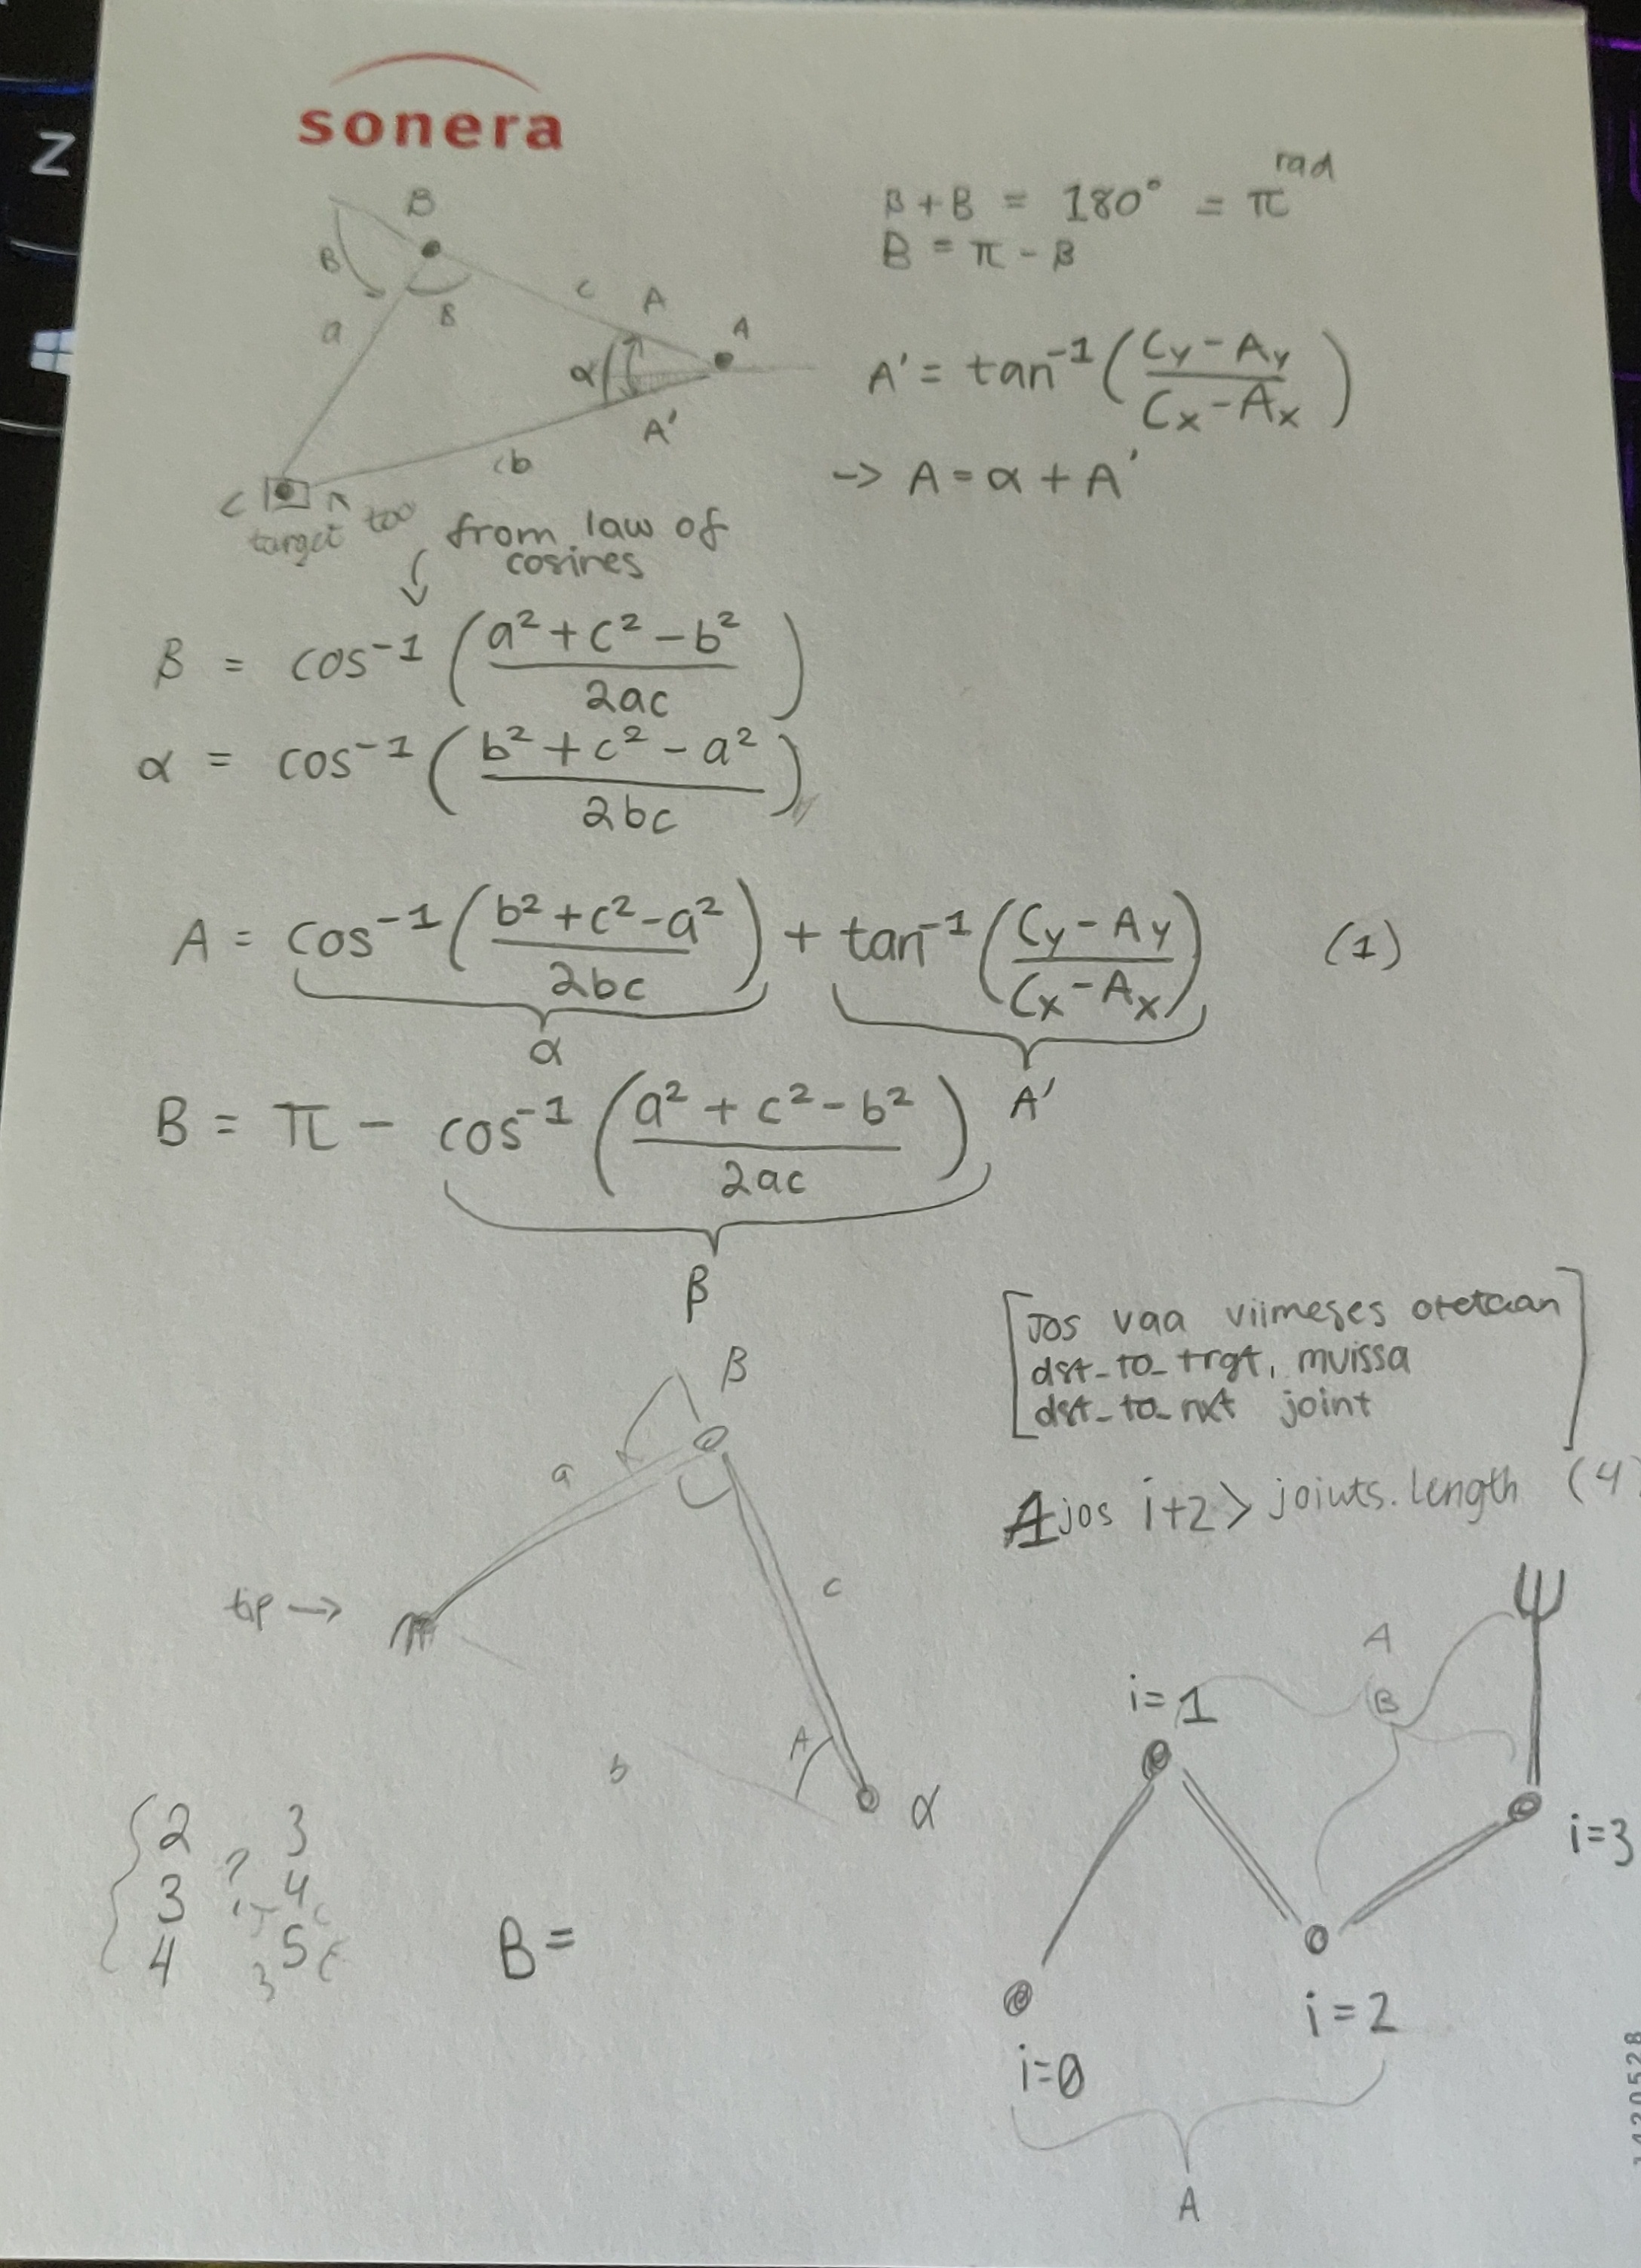 Z
sonera
B
β
β
a
c
A
A
α
A'
b
C
target too
β + B = 180° = π rad
B = π - β
A' = tan⁻¹ ( (Cy - Ay) / (Cx - Ax) )
-> A = α + A'
from law of
cosines
β = cos⁻¹ ( (a² + c² - b²) / 2ac )
α = cos⁻¹ ( (b² + c² - a²) / 2bc )
A = cos⁻¹ ( (b² + c² - a²) / 2bc ) + tan⁻¹ ( (Cy - Ay) / (Cx - Ax) ) (1)
α
A'
B = π - cos⁻¹ ( (a² + c² - b²) / 2ac )
β
[Jos vaa viimeses otetaan
dst_to_trgt, muissa
dst_to_nxt joint]
jos i+2 > joints.length (4)
β
a
c
tip ->
A
b
α
2 3
3 ? 4
4 5
3
B =
A
B
i=1
i=3
i=2
i=0
A
1420528